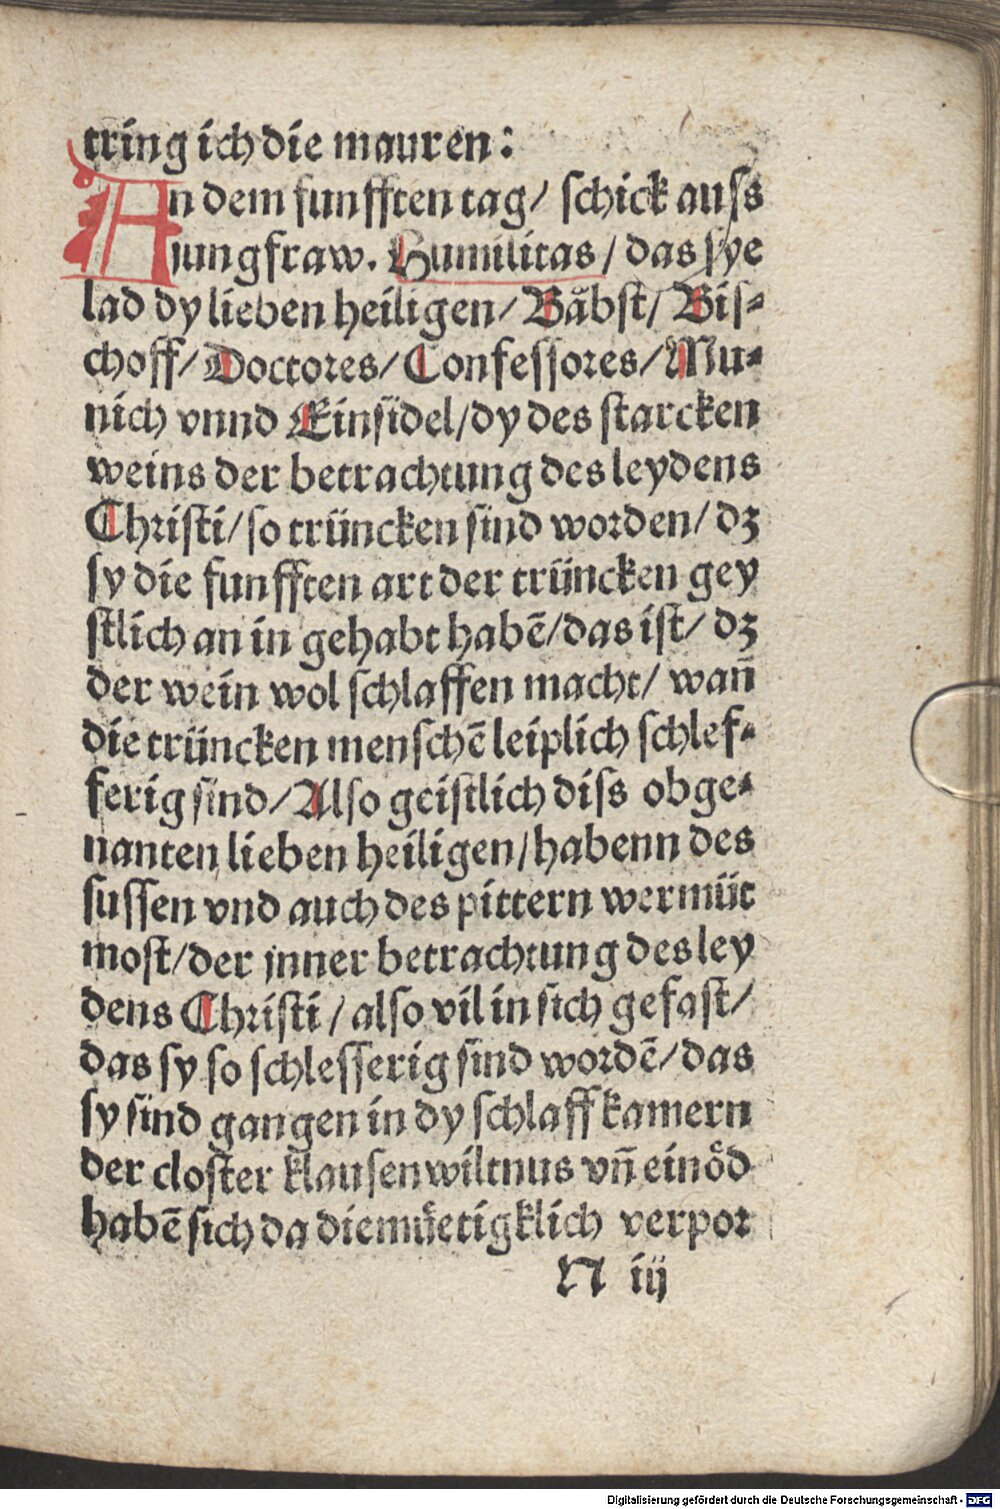 tring ich die mauren:
An dem funfften tag/ schick auss
jungfraw. Humilitas/ das sye
lad dy lieben heiligen/ Båbst/ Bis⸗
choff/ Doctores/ Confessores/ Mu⸗
nich vnnd Einsidel/ dy des starcken
weins der betrachtung des leydens
Christi/ so trüncken sind worden/ dz
sy die funfften art der trüncken gey
stlich an in gehabt habē/ das ist/ dz
der wein wol schlaffen macht/ wañ
die trüncken menschē leiplich schlef⸗
ferig sind/ Also geistlich diss obge⸗
nanten lieben heiligen/ habenn des
sussen vnd auch des pittern wermüt
most/ der jnner betrachtung des ley
dens Christi/ also vil in sich gefast/
das sy so schlesserig sind wordē/ das
sy sind gangen in dy schlaff kamern
der closter klausen wiltnus vñ einöd
habē sich da diemüetigklich verpor
N iij
Digitalisierung gefördert durch die Deutsche Forschungsgemeinschaft - DFG